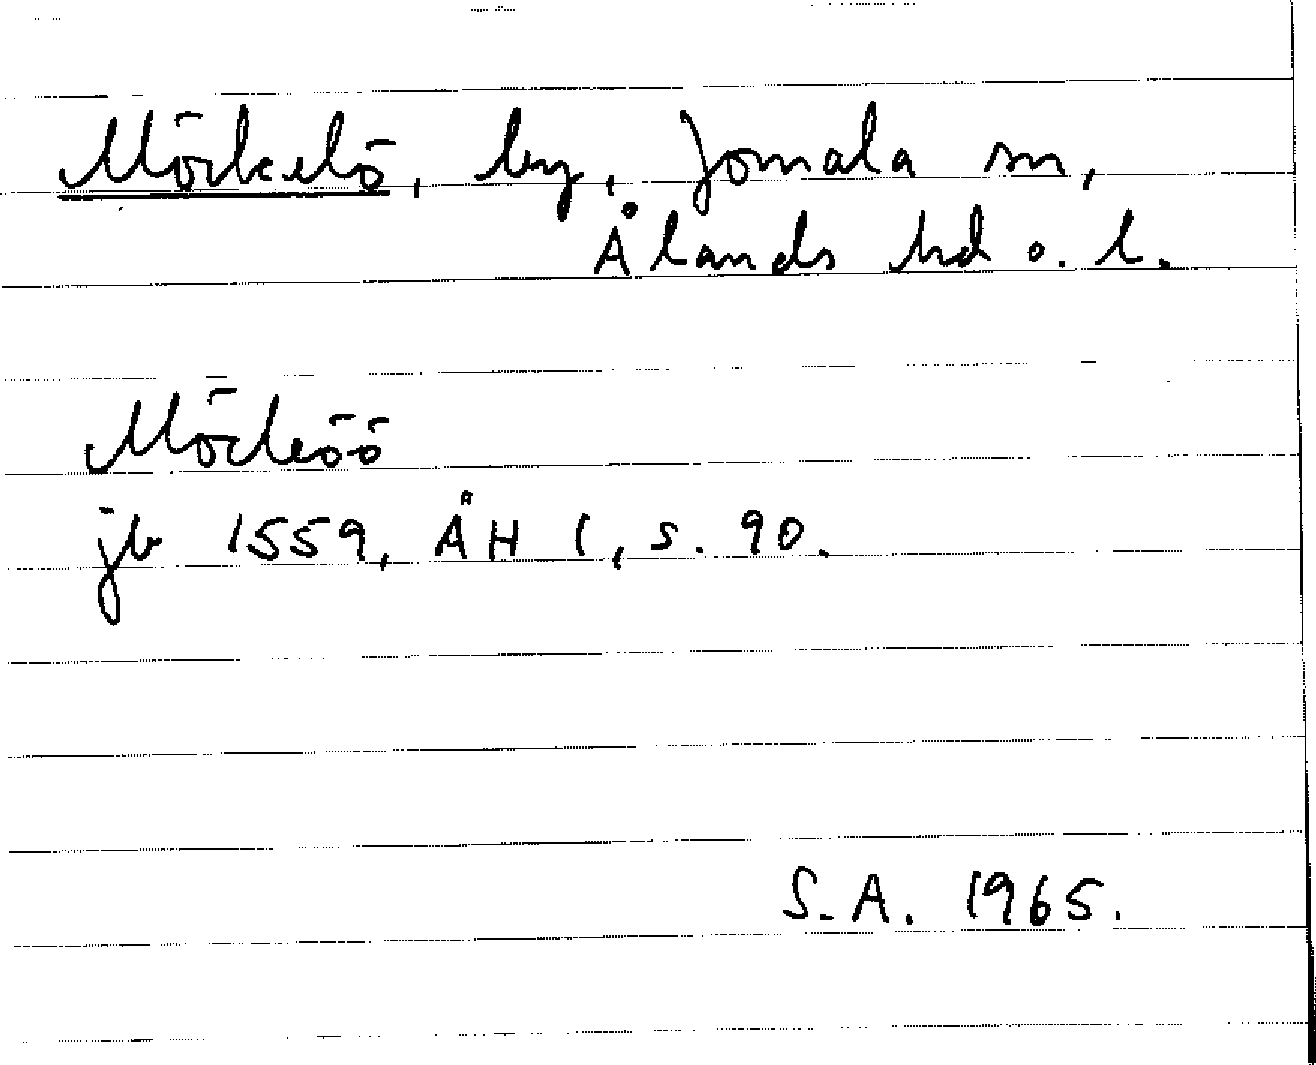 Möckelö, by, Jomala sn,
Ålands hd o. l.
Möcleöö
jb 1559, ÅH 1, s. 90.
S.A. 1965.